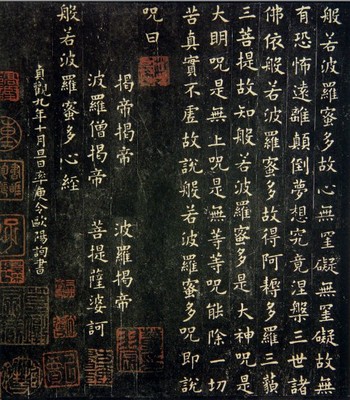 般若波羅蜜多故心無罣礙無罣礙故無
有恐怖遠離顛倒夢想究竟涅槃三世諸
佛依般若波羅蜜多故得阿耨多羅三藐
三菩提故知般若波羅蜜多是大神呪是
大明呪是無上呪是無等等呪能除一切
苦真實不虛故說般若波羅蜜多呪即說
呪曰
揭帝揭帝 波羅揭帝
波羅僧揭帝 菩提薩婆訶
般若波羅蜜多心經
貞觀九年十月旦日率更令歐陽詢書